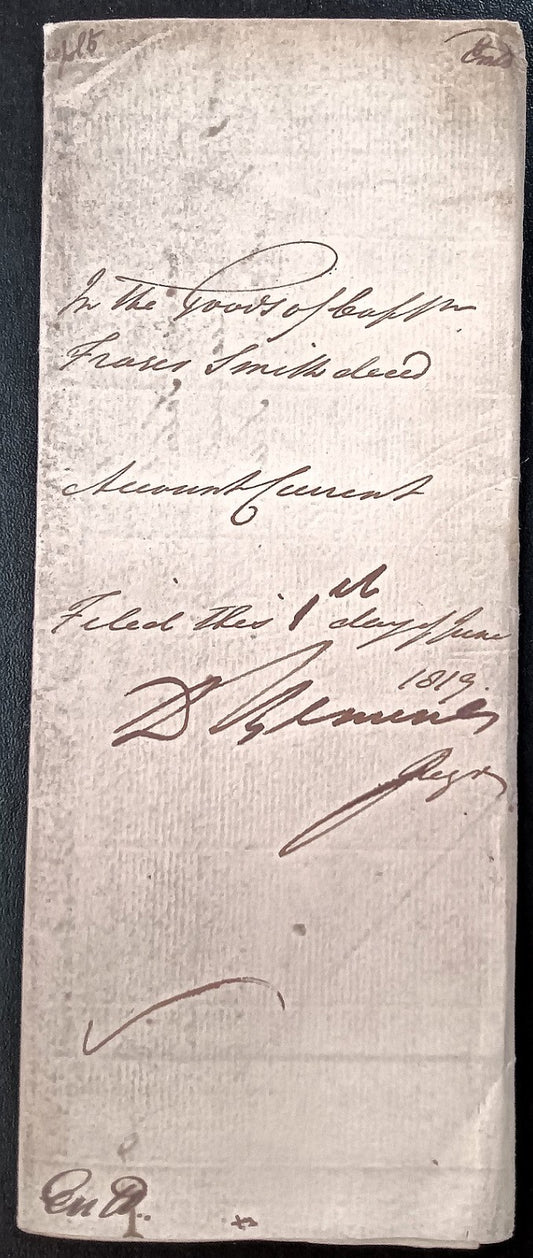 In the Goods of Captn
Fraser Smith deced
Account Current
Filed this 1st day of June
1819.
D
Regr
Entd.